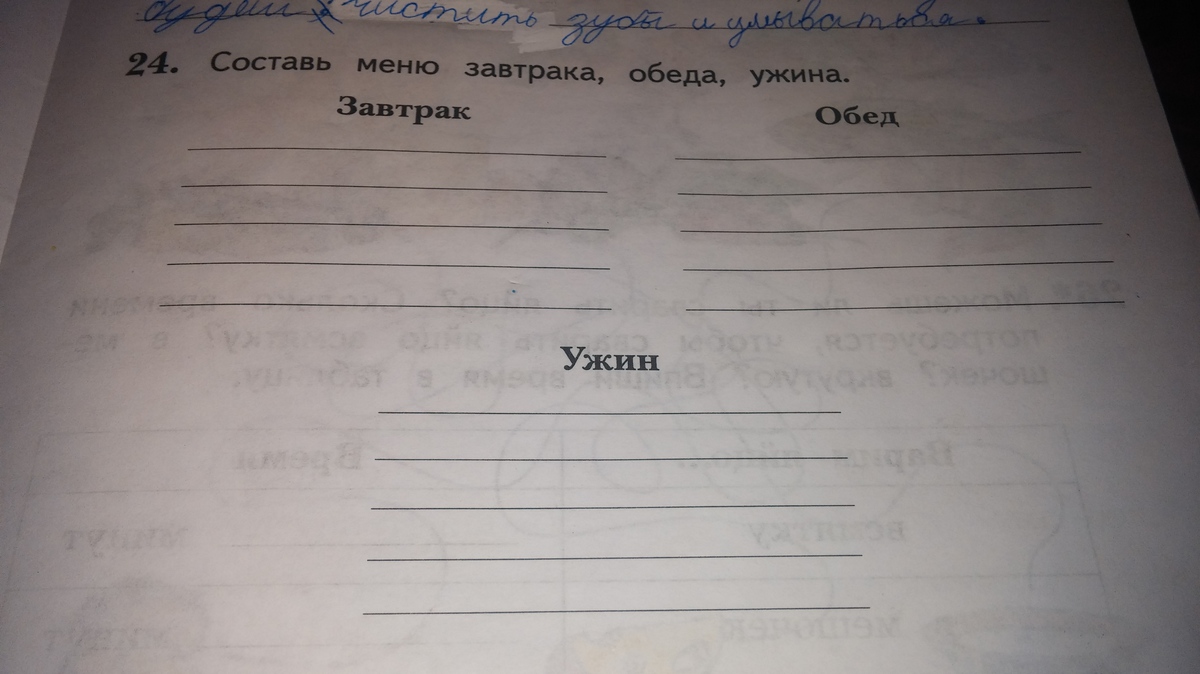 будем чистить зубы и умываться.
24. Составь меню завтрака, обеда, ужина.
Завтрак
Обед
Ужин